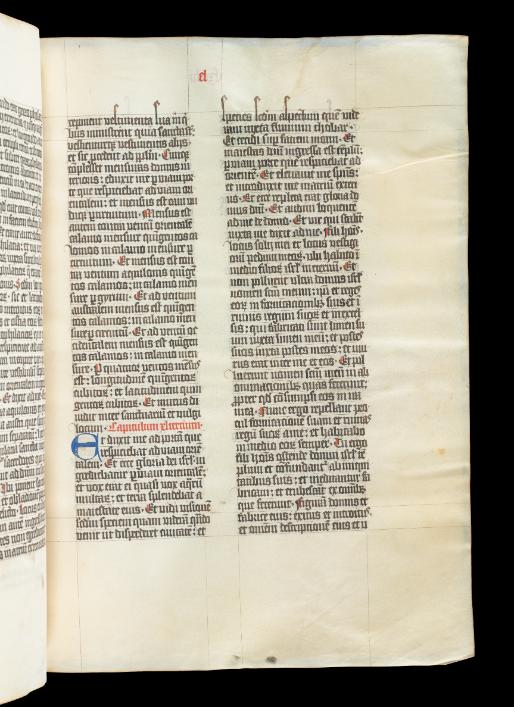 el
reponent vestimenta sua in q͛
bus ministrent quia sancta sūt
vestienturq; vestimentis alijs
et sic procedent ad ppl'm. Cumq;
cōplesset mensuras domus in
terioris: eduxit me p viam por
te que respiciebat ad viam ori
entalem: et mensus est eam un
diq; p circuitum. Mensus est
autem contra ventū orientalē
calamo mensure quingentos ca
lamos in calamo mensure p
circuitum. Et mensus est con
tra ventum aquilonis quīgē
tos calamos: in calamo men
sure p gyrum. Et ad ventum
australem mensus est quīgen
tos calamos: in calamo men
sure p circuitū. Et ad ventū oc
cidentalem mensus est quīgen
tos calamos: in calamo men
sure. P quatuor ventos mēsus
est: longitudinē quīgentorū
cubitorū: et latitudinem quin
gentorū cubitorū. Et murus di
vidit inter sanctuariū et vulgi
locum. Capitulum xliertium.
Et duxit me ad portā que
respiciebat ad viam oriē
talem. Et ecce gloria dei isrl' in
grediebatur p viam orientalē:
et vox erat ei quasi vox aquarū
multarū: et terra splendebat a
maiestate eius. Et vidi visionē
scdm speciem quam viderā qn̄do
venit ut disperderet civitatē: et
species scdm aspectum quē vide
ram iuxta fluvium chobar.
Et cecidi sup faciem meam. Et
maiestas dn̄i ingressa est templū
p viam porte que respiciebat ad
orientē. Et elevavit me spūs:
et introduxit me in atriū interi
us. Et ecce repleta erat gloria do
mini domꝰ. Et audivi loquentē
ad me de domo. Et vir qui stabat
iuxta me dixit ad me. Fili hoīs:
locus solij mei et locus vestigi
orū pedum meorū: ubi habito ī
medio filiorū isrl' in eternū. Et
non polluent ultra domus isrl'
nomen sc̄m meum: ip̄i et reges
eorū in fornicationibꝰ suis et ī
ruinis regum suorū et in excel
sis: qui fabricati sunt limen su
um iuxta limen meū: et postes
suos iuxta postes meos: et mu
rus erat inter me et eos. Et pol
luerunt nomen sc̄m meū in ab
hominationibꝰ quas fecerunt:
propter qd' cōsumpsi eos in ira
mea. Nunc ergo repellant pro
cul fornicationē suam et ruinas
regū suorū a me: et habitabo
in medio eorū semper. Tu ergo
fili hoīs ostende domui isrl' tē
plum et confundant' ab iniqui
tatibus suis: et metiantur fa
bricam: et erubescāt ex omnibꝰ
que fecerunt. Figuram domus et
fabrice eius: exitus et introitꝰ
et omnem descriptionē eius et u